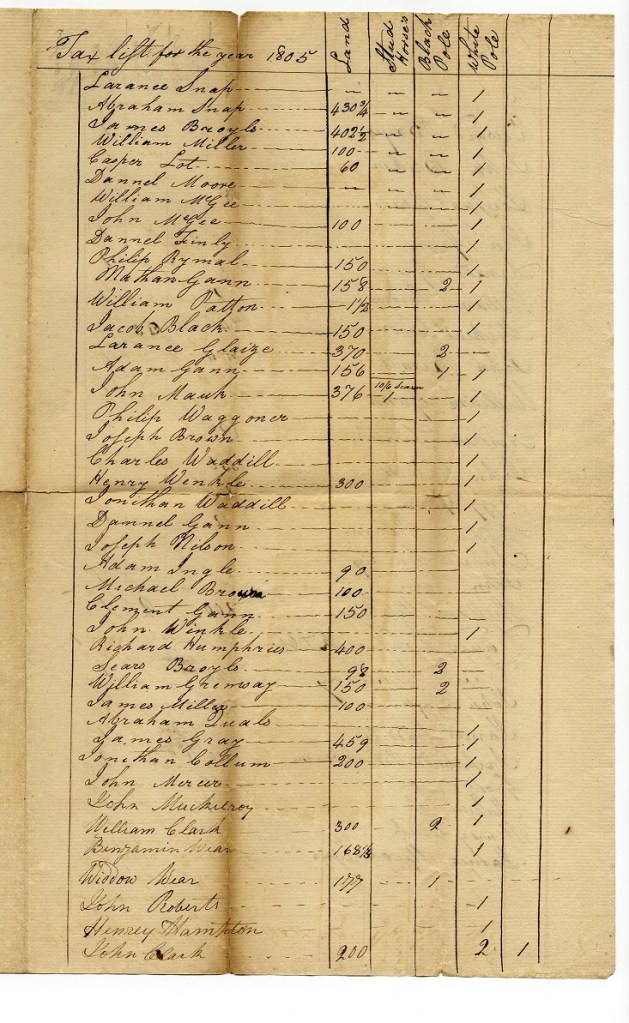 Tax list for the year 1805 Land Stud Horses Black Pole White Pole
Larance Snap — — — 1
Abraham Snap 430 3/4 — — 1
James Broyls 402 1/2 — — 1
William Miller 100 — — 1
Casper Lot 60 — — 1
Dannel Moore — — — 1
William McGee 1
John McGee 100 1
Dannel Finly 1
Philip Rymal 150 1
Nathan Gann 158 2 1
William Patton 1 1/2 1
Jacob Black 150 1
Larance Glaize 370 2
Adam Gann 156 1 1
John Mauk 376 1 1
Philip Waggoner 1
Joseph Brown 1
Charles Waddill 1
Henry Winkle 300 1
Jonithan Waddill 1
Damnel Gann 1
Joseph Nilson 1
Adam Ingle 90
Michael Brown 100
Clement Gann 150
John Winkle 1
Richard Humphries 400
Sears Broyls 98 2
William Gremsay 150 2
James Miller 100
Abraham Duals 1
James Gray 459 1
Jonithan Collum 200 1
John Mercer 1
John Muckilroy 1
William Clark 300 2 1
Benjamin Wear 168 1
Widdow Wear 177 1
John Roberts 1
Henrey Hampton 1
John Clark 200 2 1